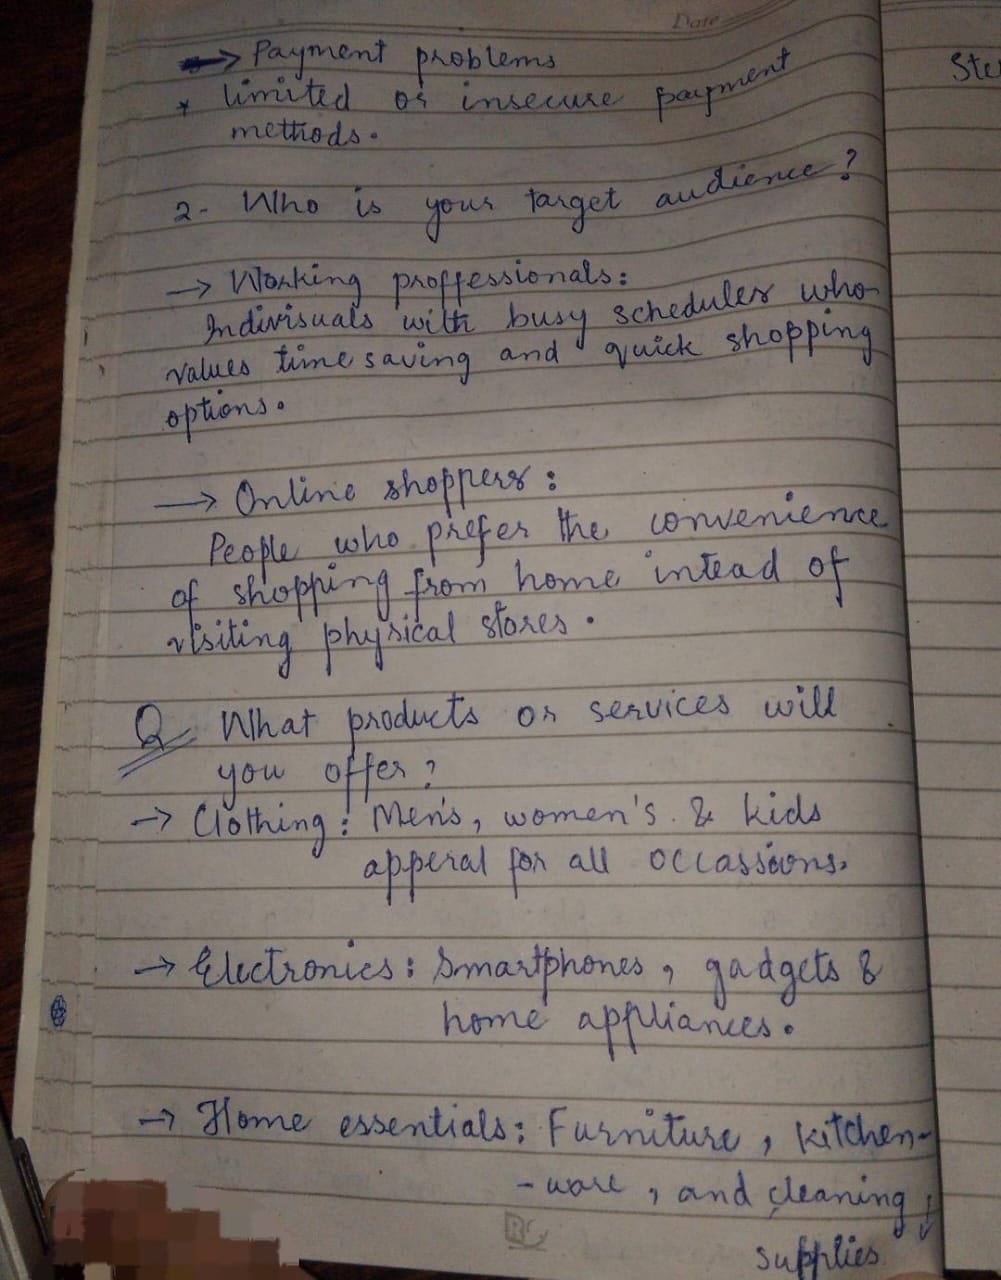 Date
→ Payment problems
* limited or insecure payment
methods.
2- Who is your target audience?
→ Working proffessionals:
Indivisuals with busy schedules who
values time saving and quick shopping
options.
→ Online shoppers:
People who prefer the convenience
of shopping from home intead of
visiting physical stores.
Q What products or services will
you offer?
→ Clothing: Men's, women's & kids
apperal for all occassions.
→ Electronics: Smartphones, gadgets &
home appliances.
→ Home essentials: Furniture, kitchen-
-ware, and cleaning
supplies
Ste